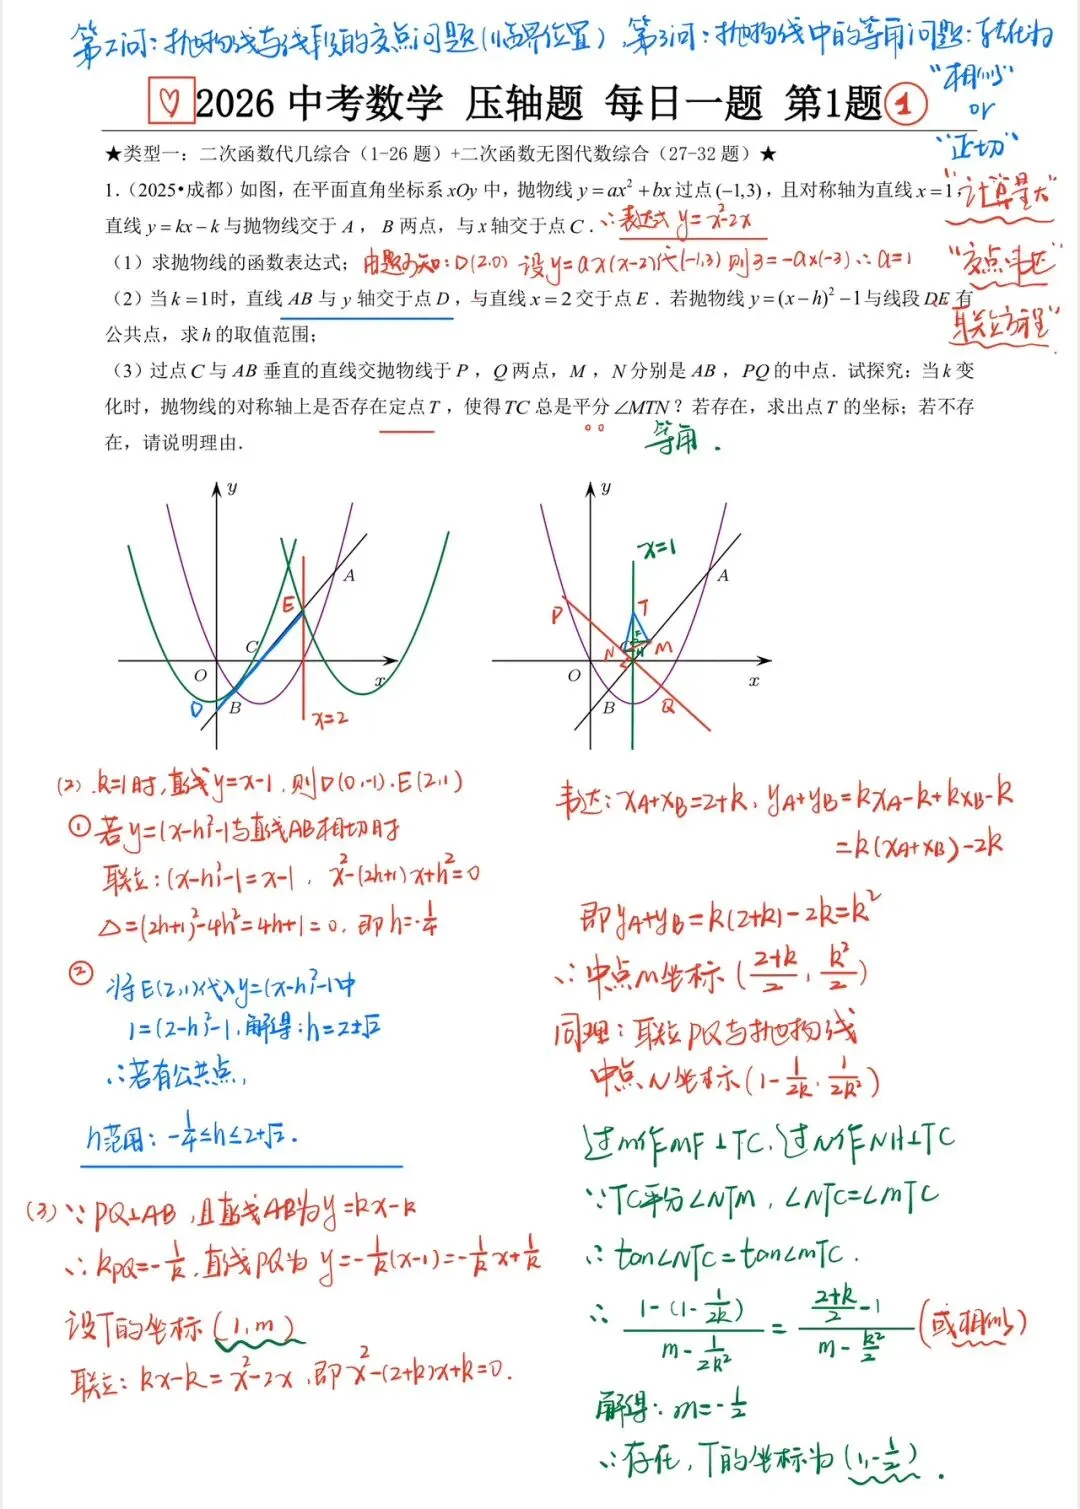 第2问：抛物线与线段的交点问题(临界位置)、第3问：抛物线中的等角问题：转化为
"相似"
or
"正切"
♡ 2026 中考数学 压轴题 每日一题 第1题 ①
★类型一：二次函数代几综合（1-26 题）+二次函数无图代数综合（27-32 题）★
1.（2025•成都）如图，在平面直角坐标系 xOy 中，抛物线 y = ax² + bx 过点 (−1,3)，且对称轴为直线 x = 1，
"计算量大"
直线 y = kx − k 与抛物线交于 A ，B 两点，与 x 轴交于点 C．∴表达式 y=x²-2x
（1）求抛物线的函数表达式；由题可知：D(2,0) 设y=ax(x-2)代(-1,3) 则3=-a×(-3) ∴a=1
"交点韦达"
（2）当 k = 1 时，直线 AB 与 y 轴交于点 D ，与直线 x = 2 交于点 E．若抛物线 y = (x − h)² − 1 与线段 DE 有
公共点，求 h 的取值范围；
联立方程"
（3）过点 C 与 AB 垂直的直线交抛物线于 P ，Q 两点，M ，N 分别是 AB ，PQ 的中点．试探究：当 k 变
化时，抛物线的对称轴上是否存在定点 T ，使得 TC 总是平分 ∠MTN ？若存在，求出点 T 的坐标；若不存
在，请说明理由．
等角．
y
A
E
C
O
x
D
B
x=2
y
x=1
A
P
T
F
N
M
H
O
x
B
Q
(2) .k=1时,直线y=x-1 .则D(0,-1).E(2,1)
①若y=(x-h)²-1与直线AB相切时
联立：(x-h)²-1=x-1 , x²-(2h+1)x+h²=0
△=(2h+1)²-4h²=4h+1=0. 即h=-1/4
② 将E(2,1)代入y=(x-h)²-1中
1=(2-h)²-1,解得:h=2±√2
∴若有公共点,
h范围：-1/4≤h≤2+√2.
(3) ∵PQ⊥AB ,且直线AB为y=kx-k
∴kPQ=-1/k .直线PQ为 y=-1/k(x-1)=-1/k x+1/k
设T的坐标(1,m)
联立：kx-k=x²-2x ,即x²-(2+k)x+k=0.
韦达：xA+xB=2+k, yA+yB=kxA-k+kxB-k
=k(xA+xB)-2k
即yA+yB=k(2+k)-2k=k²
∴中点M坐标(2+k/2, k²/2)
同理：联立PQ与抛物线
中点N坐标(1-1/2k, 1/2k²)
过M作MF⊥TC,过N作NH⊥TC
∵TC平分∠NTM , ∠NTC=∠MTC
∴tan∠NTC=tan∠MTC.
∴ 1-(1-1/2k)/m-1/2k² = 2+k/2-1/m-k²/2 (或相似)
解得：m=-1/2
∴存在,T的坐标为(1,-1/2).